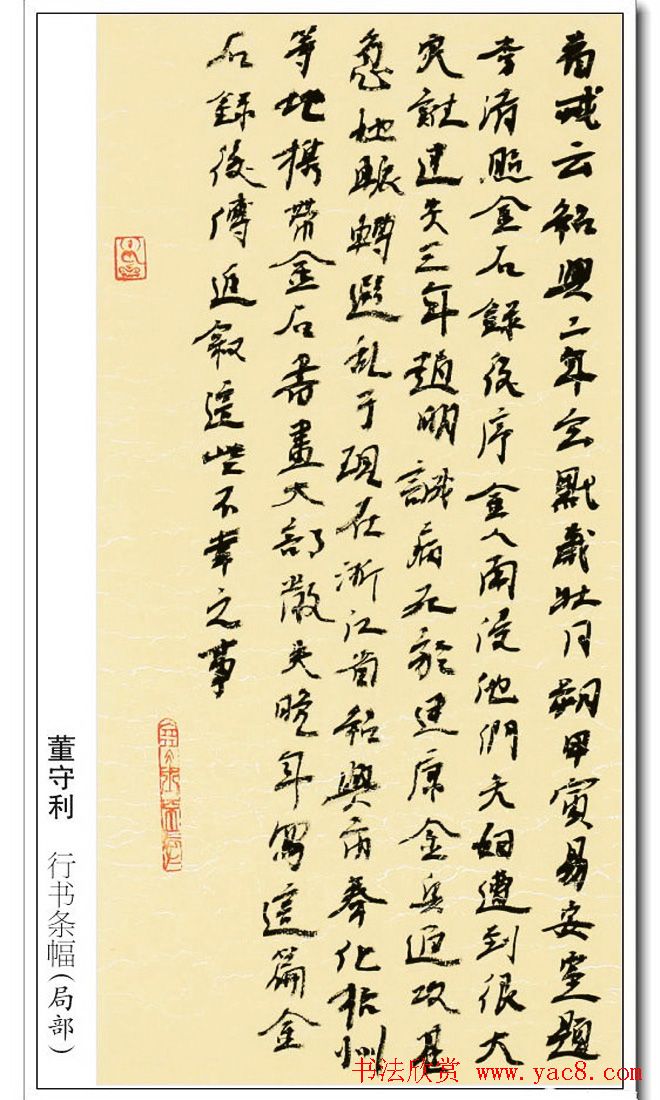 戒云紹興二年玄黓歲壯月朔甲寅易安室題
李清照金石録後序金人南侵他們夫妇遭到很大
灾難建炎三年趙明誠病死於建康金兵進攻甚
急她輾轉避乱于現在浙江省紹興市奉化杭州
等地携帶金石書畫大部散失晚年寫這篇金
石録後傳追叙這些不幸之事
董守利 行书条幅(局部)
书法欣赏 www.yac8.com